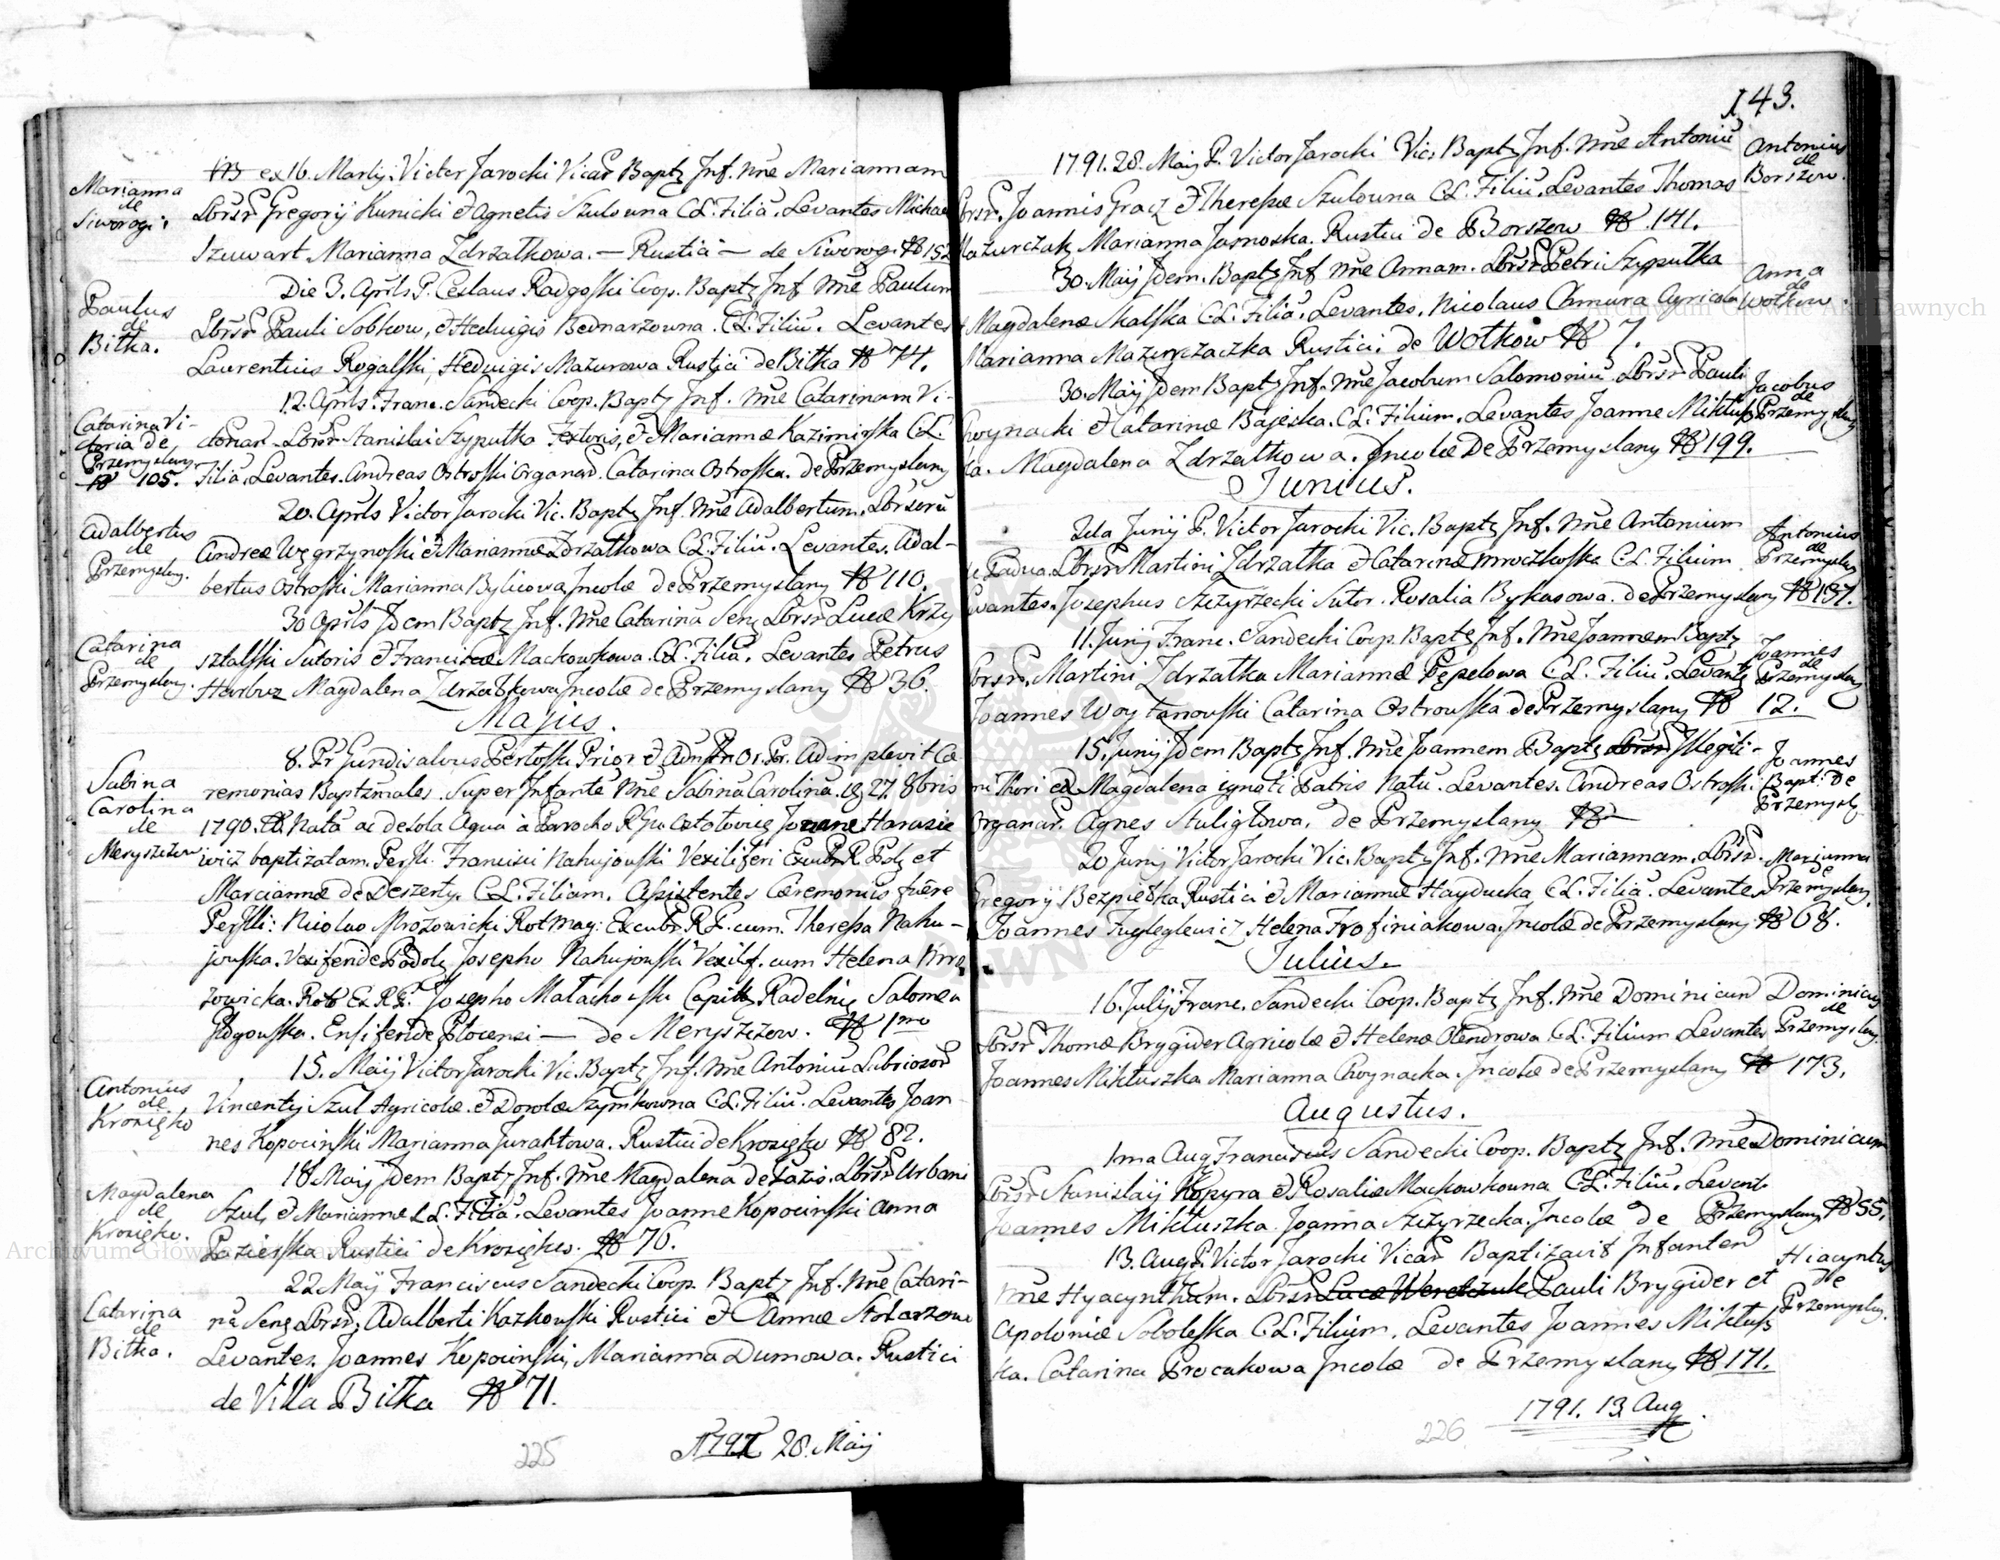 Marianna
de
Siworogi.
NB ex 16. Martij. Victor Jarocki Vicar Baptz Inf. nne Mariannam
Lbrsr Gregorij Kunicki & Agnetis Szulowna C.L. Filia. Levantes Michael
Szuwart Marianna Zdrzałkowa. — Rustici — de Siworogi N 152
Paulus
de
Bitka.
Die 3. Aprls P. Ceslaus Radgoski Coop. Baptz Inf nne Paulum
Lbrsr Pauli Sobkow, & Hedwigis Bednarzowna. C.L. Filiu. Levantes
Laurentius Rogalski, Hedwigis Mazurowa Rustici de Bitka N 74.
Catarina Vi-
ctoria de
Przemyslany
N 105.
12. Aprls. Franc. Sandecki Coop. Baptz Inf. nne Catarinam Vi-
ctoriam Lbrsr Stanislai Szyputka Textoris, & Mariannæ Kazimirska C.L.
Filia. Levantes. Andreas Ostroski Organar. Catarina Ostroska. de Przemyslany
Adalbertus
de
Przemyslany.
20. Aprls Victor Jarocki Vic. Baptz Inf. nne Adalbertum. Lbrsoru
Andreæ Węgrzynoski & Mariannæ Zdrzatkowa C.L. Filiu. Levantes. Adal-
bertus Ostroski Marianna Bylicowa, Incolæ de Przemyslany N 110.
Catarina
de
Przemyslany.
30 Aprls Idem Baptz Inf. nne Catarina Seny Lbrsr Lucæ Krzy
sztalski Sutoris & Franciscæ Mackowkowa. C.L. Filia. Levantes Petrus
Harbuz Magdalena Zdrzatkowa Incolæ de Przemyslany N 36.
Majus.
Sabina
Carolina
de
Meryszczow
8. Pr Gundisalvus Pertoski Prior & Admstror. Pr. Adimplevit Cæ
remonias Baptzmales. Super Infante nne Sabina Carolina. 27. 8bris
1790. Nata ac de sola Aqua à Parocho Joanne Harasie
wicz baptizatam. Persll. Francisci Nahujowski Vexiliferi et
Mariannæ de Deszerty. C.L. Filiam. Assistentes Cæremoniis fuêre
Persll: Nicolao Mrozowicki Rotmag: Excubr R.P. cum. Theressa Nahu-
jowska. Vexiferide Podolz Josepho Nahujowski Vexilf. cum Helena Mro
zowicka. Rot Ex R.P. Josepho Małachowski Capitz Radelnig Salomea
Głogowska. Ensiferide Plocensi — de Meryszczow. N 1mo
Antonius
de
Krosięko
15. Maij Victor Jarocki Vic. Baptz Inf. nne Antoniu Labriosor
Vincentij Szul Agricolæ. & Dorotæ Szymkowna C.L. Filiu. Levantes Joan
nes Kopocinski Marianna Juraktowa. Rustici de Krosięko N 82.
Magdalena
de
Krosięko.
18 Maij Idem Baptz Inf. nne Magdalena de Pazis. Lbrsr Urbani
Szul, & Mariannæ C.L. Filia. Levantes Joanne Kopocinski Anna
Pazierska Rustici de Krosięko. N 76.
Catarina
de
Bitka.
22 Maij Franciscus Sandecki Coop. Baptz Inf. nne Catari-
na Seny Lbrsr. Adalberti Kazkowski Rustici & Annæ Stolarzowa
Levantes. Joannes Kopocinski, Marianna Dumowa. Rustici
de Villa Bitka N 71.
225
A 1791 28. Maij
143.
1791. 28. Maij P. Victor Jarocki Vic. Baptz Inf. nne Antoniu
Lbrsr. Joannis Gracz & Theressæ Szulowna C.L. Filiu. Levantes Thomas
Mazurczak Marianna Jasnoska. Rustici de Borszow N 141.
Antonius
de
Borszow.
30. Maij Idem. Baptz Inf nne Annam. Lbrsr Petri Szyputka
& Magdalenæ Skalska C.L. Filia. Levantes. Nicolaus Chmura Agricola
Marianna Mazurczaczka Rustici. de Wołkow N 7.
Anna
de
Wołkow.
30. Maij Idem Baptz Inf. nne Jacobum Salomoniu Lbrsr Pauli
Choynacki & Catarinæ Bajeska. C.L. Filium. Levantes Joanne Miktusz
ka. Magdalena Zdrzatkowa. Incolæ De Przemyslany N 199.
Jacobus
de
Przemyslany
Junius.
2da Junij P. Victor Jarocki Vic. Baptz Inf. nne Antonium
de Padua. Lbrsr Martini Zdrzatka & Catarinæ Mroczkoska C.L. Filium
Levantes. Josephus Szczyrzecki Sutor. Rosalia Bykasowa. de Przemyslany N 137.
Antonius
de
Przemyslany
11. Junij Franc. Sandecki Coop. Baptz Inf. nne Joannem Baptz
Lbrsr. Martini Zdrzatka Mariannæ Pępelowa C.L. Filiu. Levants
Joannes Woytanowski Catarina Ostrowska de Przemyslany N 12.
Joannes
de
Przemyslany
15. Junij Idem Baptz Inf. nne Joannem Baptz Lbrsr Illegiti-
mi Thori ex Magdalena ignoti Patris Natu. Levantes. Andreas Ostroski
Organar. Agnes Stuligłowa. de Przemyslany N
Joannes
Bapt: de
Przemysly
20 Junij Victor Jarocki Vic. Baptz Inf. nne Mariannam. Lbrsr.
Gregorij Bezpietka Rustici & Mariannæ Hayducka C.L. Filia. Levantes
Joannes Helena Trofiniakowa. Incolæ de Przemyslany N 68.
Marianna
de
Przemyslany.
Julius.
16. Julij Franc. Sandecki Coop. Baptz Inf. nne Dominicum
Lbrsr Thomæ Brygider Agricolæ & Helenæ Olendrowa C.L. Filium Levantes
Joannes Miktuszka Marianna Choynacka. Incolæ de Przemyslany N 173.
Dominicus
de
Przemyslany.
Augustus.
1ma Aug Franciscus Sandecki Coop. Baptz Inf. nne Dominicum
Lbrsr Stanislaij Kopyra & Rosaliæ Mackowkowna C.L. Filiu. Levant.
Joannes Miktuszka. Joanna Szczyrzecka. Incolæ de Przemyslany N 55.
13. Aug P. Victor Jarocki Vicar Baptizavit Infantem
nne Hyacynthum. Lbrsr Lucæ Weretczuk Pauli Brygider et
Apoloniæ Soboleska C.L. Filium. Levantes Joannes Miktusz
ka. Catarina Procakowa Incolæ de Przemyslany N 171.
Hiacyntus
de
Przemyslany.
1791. 13. Aug
226
Archiwum Główne Akt Dawnych
Archiwum Główne